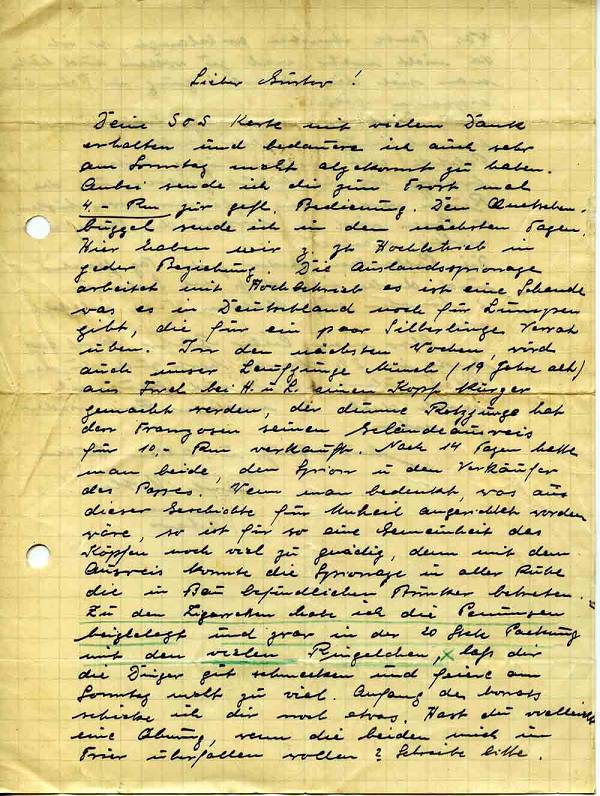 Lieber Gustav!
Deine SOS Karte mit vielem Dank
erhalten und bedauere ich auch sehr
am Sonntag nicht abgekommt zu haben.
Anbei sende ich dir zum Trost mal
4.- Rm zur gefl. Bedienung. Den Quetschen-
büggel sende ich in den nächsten Tagen.
Hier haben wir z. zt Hochbetrieb in
jeder Beziehung. Die Auslandsspionage
arbeitet mit Hochbetrieb es ist eine Schande
was es in Deutschland noch für Lumpen
gibt, die für ein paar Silberlinge Verrat
üben. In den nächsten Wochen, wird
auch unser Laufjunge Münch (19 Jahre alt)
aus bei H. u. L. einen Kopf kürzer
gemacht werden, der dumme Rotzjunge hat
den Franzosen seinen Geländeausweis
für 10,- Rm verkauft. Nach 14 Tagen hatte
man beide, den Spion u den Verkäufer
des Passes. Wenn man bedenkt, was aus
dieser Geschichte für Unheil angerichtet worden
wäre, so ist für so eine Gemeinheit das
Köpfen noch viel zu gnädig, denn mit dem
Ausweis konnte die Spionage in aller Ruhe
die in Bau befindlichen Bunker betreten.
Zu den Zigarretten habe ich die Penunsen
beigelegt und zwar in der 20 Stck Packung
mit den vielen Ringelchen, x laß dir
die Dinger gut schmecken und feiere am
Sonntag nicht zu viel. Anfang des Monats
schicke ich dir noch etwas. Hast du vielleicht
eine Ahnung, wenn die beiden mich in
Trier überfallen wollen? Schreibe bitte.